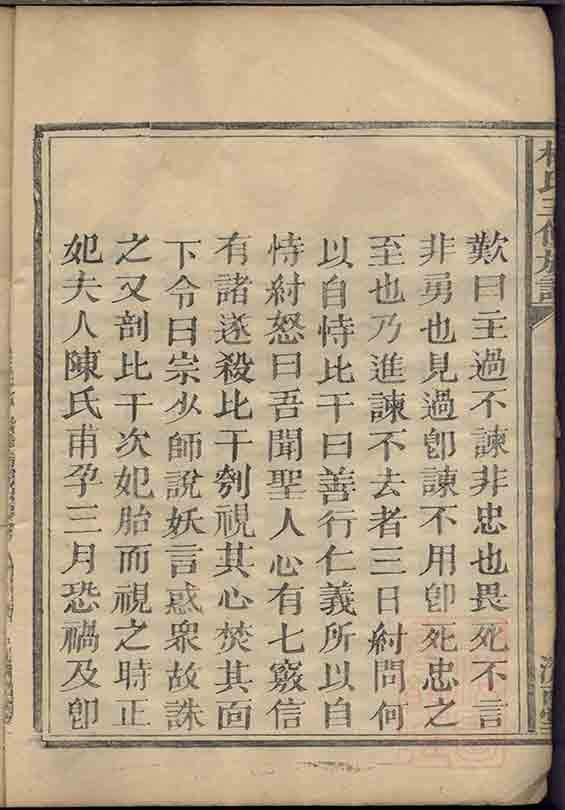 歎曰主過不諫非忠也畏死不言
非勇也見過卽諫不用卽死忠之
至也乃進諫不去者三日紂問何
以自恃比干曰善行仁義所以自
恃紂怒曰吾聞聖人心有七竅信
有諸遂殺比干刳視其心焚其面
下令曰宗少師說妖言惑衆故誅
之又剖比干次妃胎而視之時正
妃夫人陳氏甫孕三月恐禍及卽
林氏三修族譜